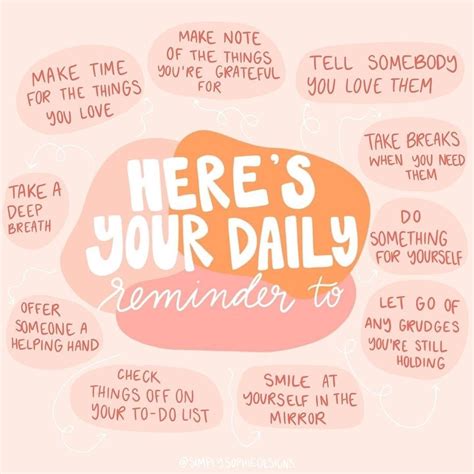 HERE'S
YOUR DAILY
reminder to
MAKE TIME
FOR THE THINGS
YOU LOVE
MAKE NOTE
OF THE THINGS
YOU'RE GRATEFUL
FOR
TELL SOMEBODY
YOU LOVE THEM
TAKE BREAKS
WHEN YOU NEED
THEM
DO
SOMETHING
FOR YOURSELF
LET GO OF
ANY GRUDGES
YOU'RE STILL
HOLDING
SMILE AT
YOURSELF IN THE
MIRROR
CHECK
THINGS OFF ON
YOUR TO-DO LIST
OFFER
SOMEONE A
HELPING HAND
TAKE A
DEEP
BREATH
@SIMPLYSOPHIEDESIGNS